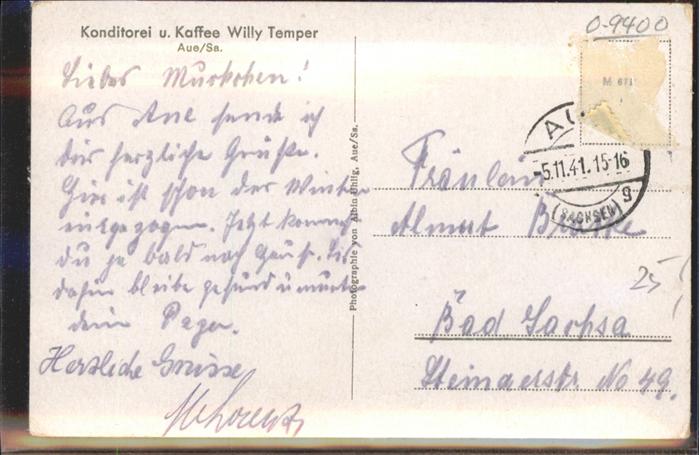 O-9400
Konditorei u. Kaffee Willy Temper
Aue/Sa.
Liebes Murkchen!
Aus Aue sende ich
dir herzliche Grüße.
Hier ist schon der Winter
eingezogen. Jetzt kommst
du ja bald nach Hause. Bis
dahin bleibe gesund u. munter
dein Papa.
Herzliche Grüsse
Photographie von Albin Uhlig, Aue/Sa.
M 671
AU
-5.11.41.15-16
g
(SACHSEN)
Fräulein
Almut
Bad Sachsa
Steinaerstr. No 49.
25